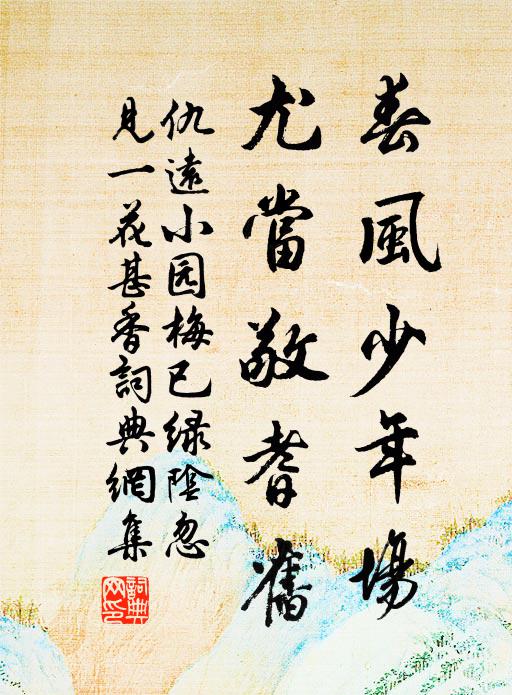 春風少年場
尤當敬耆舊
仇遠小园梅已緑陰忽
見一花甚香詞典網集
詞典網印